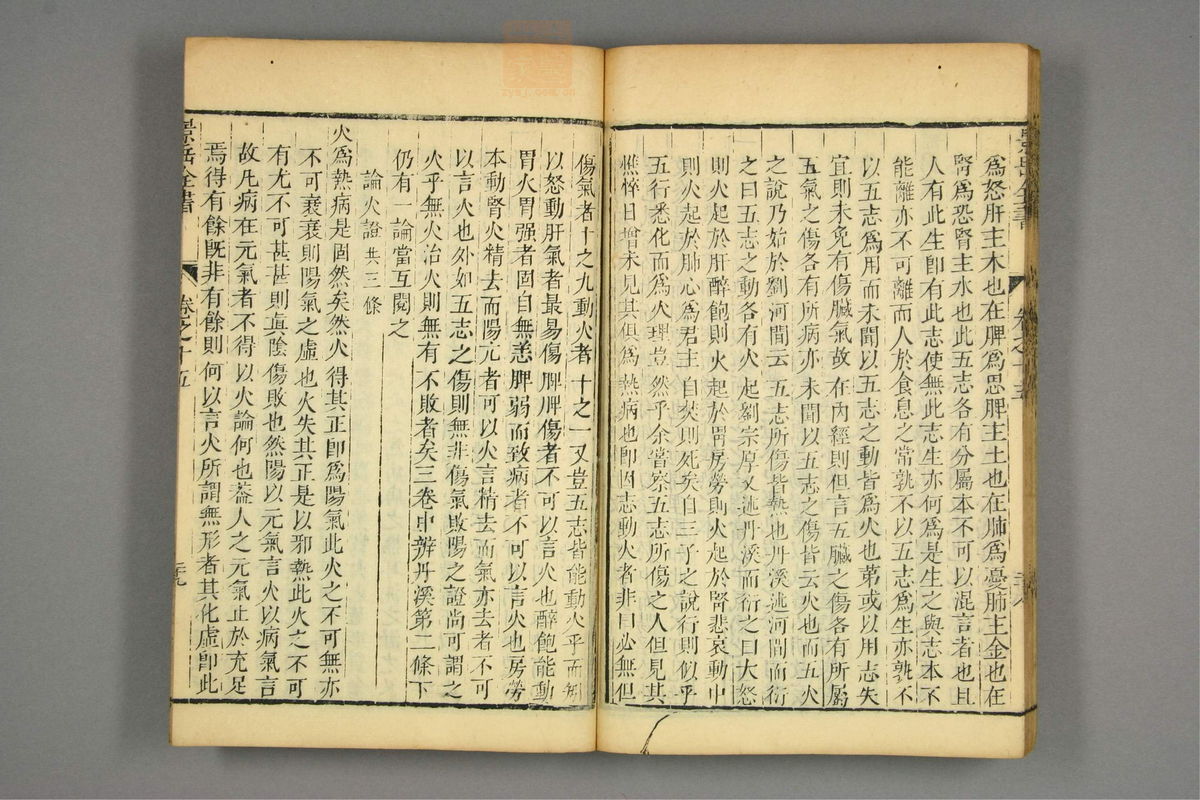 景岳全書
卷之十五
爲怒肝主木也在脾爲思脾主土也在肺爲憂肺主金也在
腎爲恐腎主水也此五志各有分屬本不可以混言者也且
人有此生卽有此志使無此志生亦何爲是生之與志本不
能離亦不可離而人於食息之常孰不以五志爲生亦孰不
以五志爲用而未聞以五志之動皆爲火也第或以用志失
宜則未免有傷臟氣故在內經則但言五臟之傷各有所屬
五氣之傷各有所病亦未聞以五志之傷皆云火也而五火
之說乃始於劉河間云五志所傷皆熱也丹溪述河間而衍
之曰五志之動各有火起劉宗厚又述丹溪而衍之曰大怒
則火起於肝醉飽則火起於胃房勞則火起於腎悲哀動中
則火起於肺心爲君主自焚則死矣自三子之說行則似乎
五行悉化而爲火理豈然乎余嘗察五志所傷之人但見其
憔悴日增未見其俱爲熱病也卽因志動火者非曰必無但
傷氣者十之九動火者十之一又豈五志皆能動火乎而矧
以怒動肝氣者最易傷脾脾傷者不可以言火也醉飽能動
胃火胃强者固自無恙脾弱而致病者不可以言火也房勞
本動腎火精去而陽亢者可以火言精去而氣亦去者不可
以言火也外如五志之傷則無非傷氣敗陽之證尚可謂之
火乎無火治火則無有不敗者矣三卷中辨丹溪第二條下
仍有一論當互閱之
論火證共三條
火爲熱病是固然矣然火得其正卽爲陽氣此火之不可無亦
不可衰衰則陽氣之虛也火失其正是以邪熱此火之不可
有尤不可甚甚則眞陰傷敗也然陽以元氣言火以病氣言
故凡病在元氣者不得以火論何也蓋人之元氣止於充足
焉得有餘旣非有餘則何以言火所謂無形者其化虛卽此
景岳全書
卷之十五
zysj.com.cn